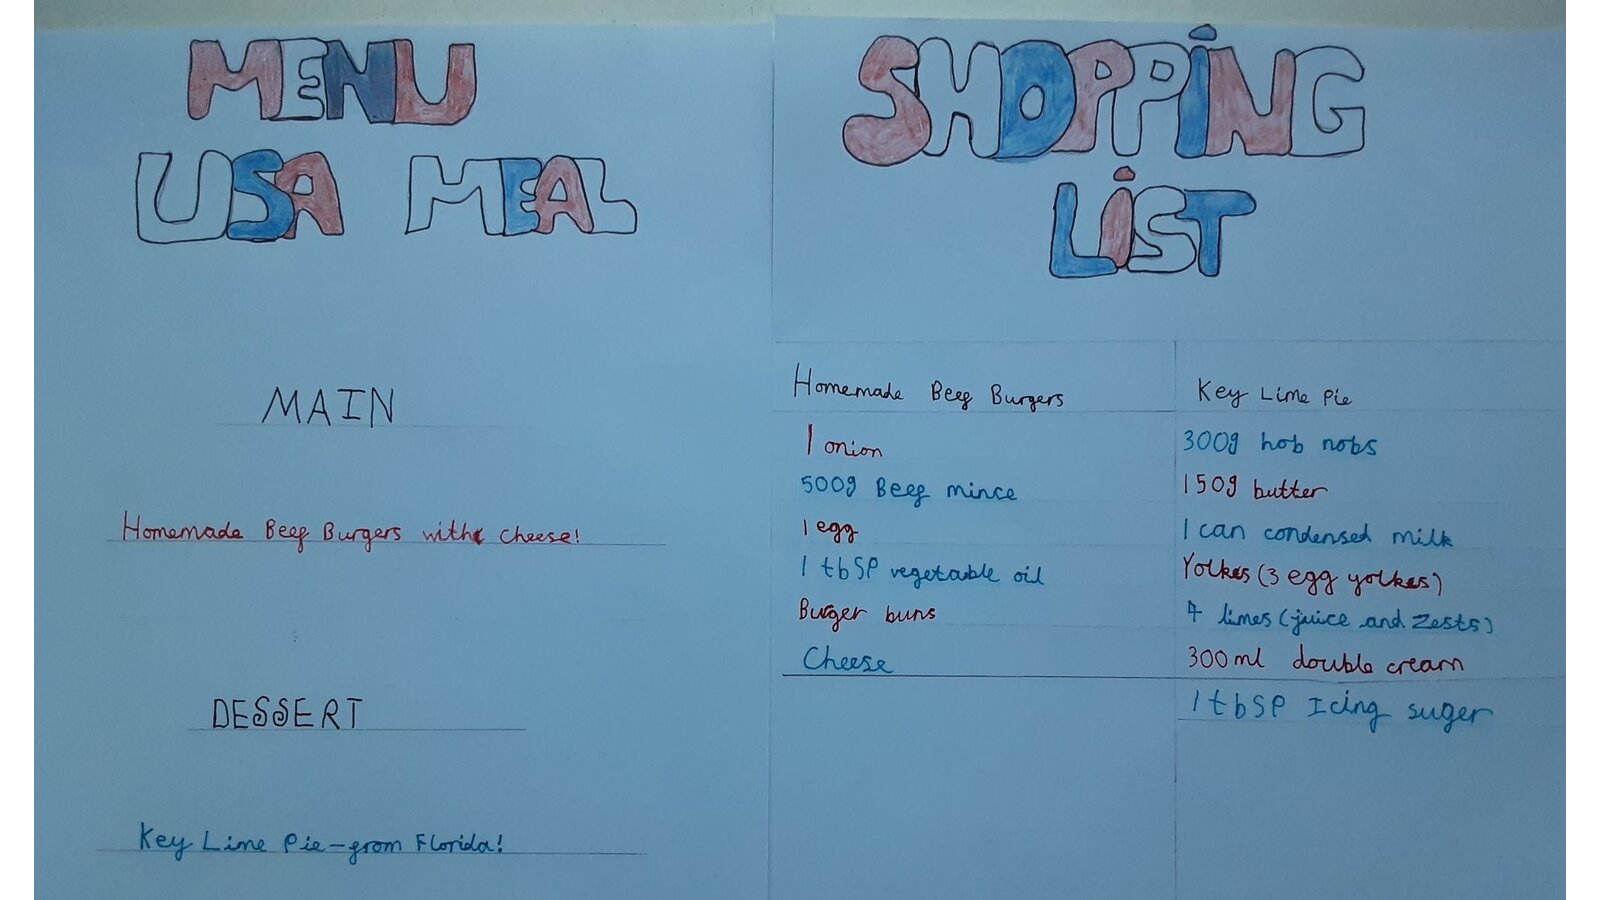 MENU
USA MEAL
MAIN
Homemade Beef Burgers with cheese!
DESSERT
Key Lime Pie - from Florida!
SHOPPING
LIST
Homemade Beef Burgers
1 onion
500g Beef mince
1 egg
1 tbsp vegetable oil
Burger buns
Cheese
Key Lime Pie
300g hob nobs
150g butter
1 can condensed milk
Yolkes (3 egg yolkes)
4 limes (juice and zests)
300ml double cream
1 tbsp Icing suger